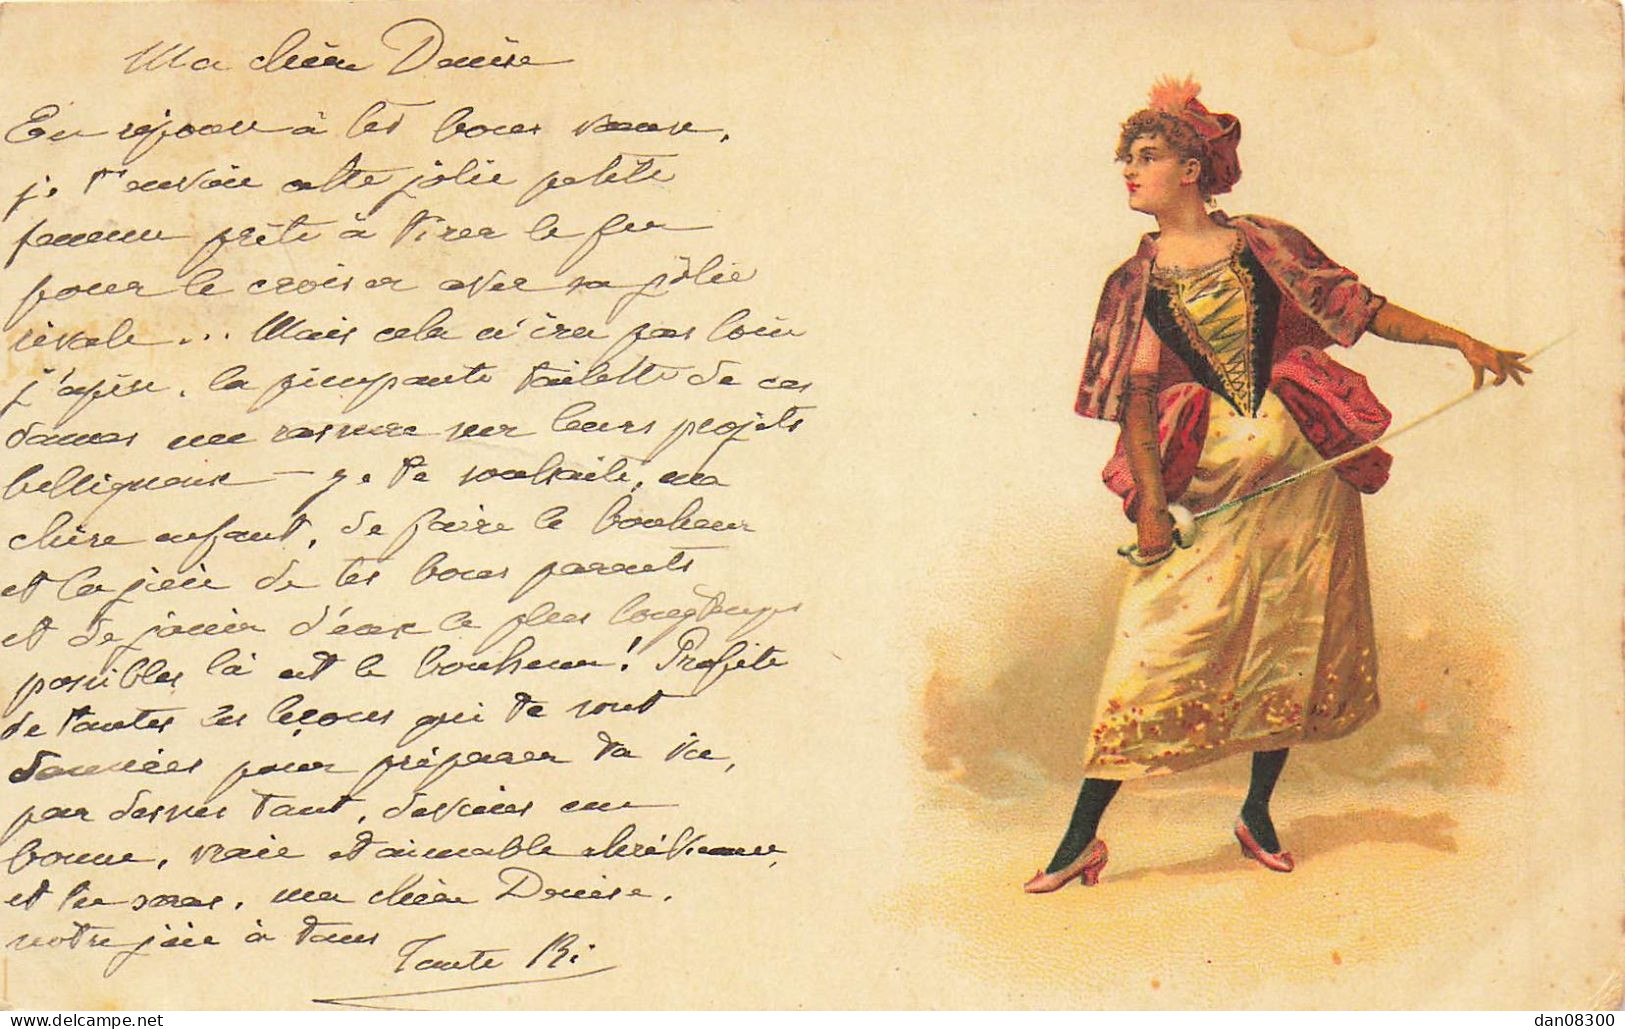 Ma chère Denise
En réponse à tes bons vœux,
je t'envoie cette jolie petite
femme prête à tirer le fer
pour le croiser avec sa jolie
rivale... Mais cela n'ira pas loin
j'espère, la pimpante toilette de ces
dames me rassure sur leurs projets
belliqueux — Je te souhaite, ma
chère enfant, de faire le bonheur
et la joie de tes bons parents
et de jouir d'eux le plus longtemps
possible, là est le bonheur! Profite
de toutes les leçons qui te sont
données pour préparer ta vie,
par dessus tout, deviens une
bonne, vraie et aimable chrétienne,
et tu seras, ma chère Denise,
notre joie à tous
Tante Ri
dan08300